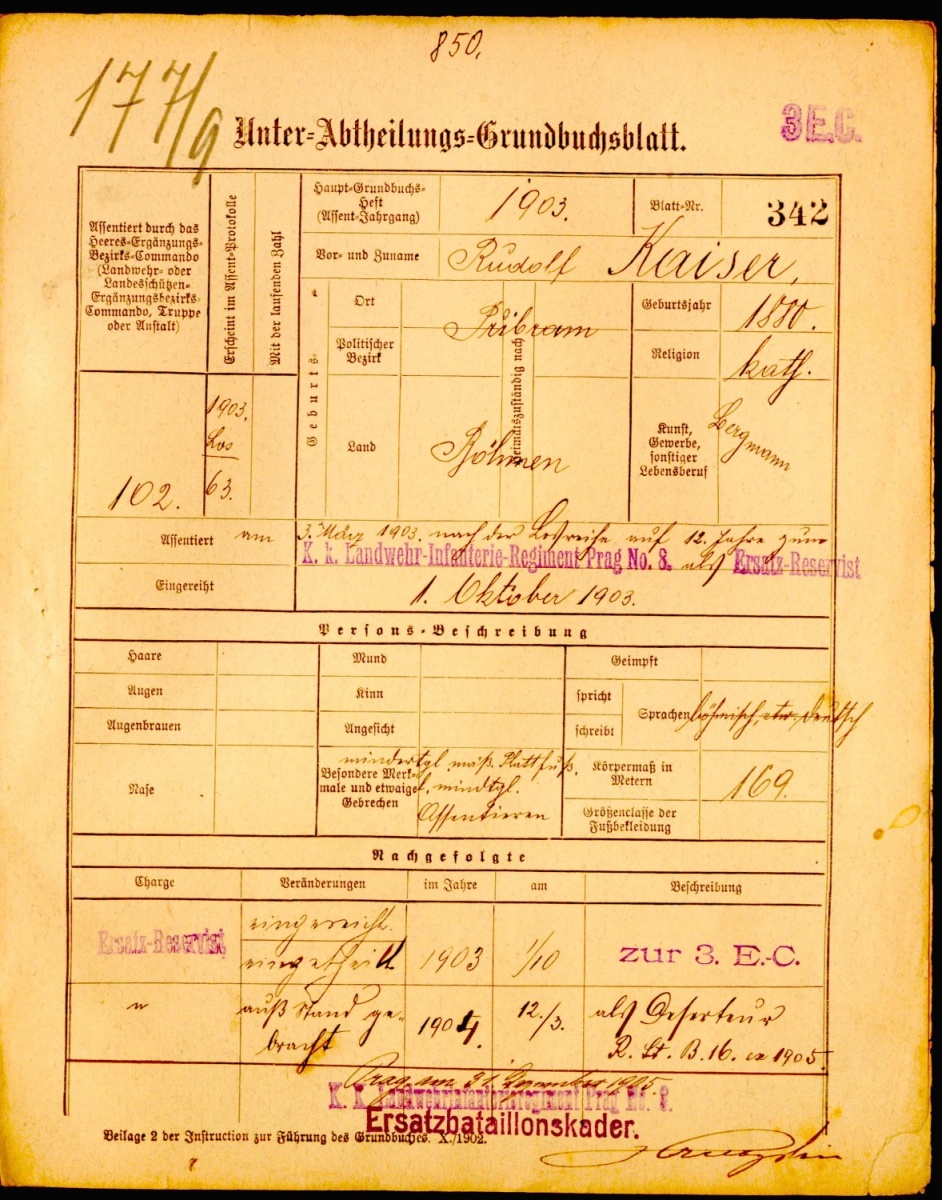 850.
177/9
3 E.C.
Unter-Abtheilungs-Grundbuchsblatt.
Assentiert durch das
Heeres-Ergänzungs-
Bezirks-Commando
(Landwehr- oder
Landesschützen-
Ergänzungsbezirks-
Commando, Truppe
oder Anstalt)
Erscheint im Assent-Protokolle
Mit der laufenden Zahl
102.
1903.
Los
63.
Haupt-Grundbuchs-
Heft
(Assent-Jahrgang)
1903.
Blatt-Nr.
342
Vor- und Zuname
Rudolf Kaiser,
Geburts-
Ort
Přibram
Politischer
Bezirk
Land
Böhmen
heimatszuständig nach
Geburtsjahr
1880.
Religion
kath.
Kunst,
Gewerbe,
sonstiger
Lebensberuf
Bergmann
Assentiert am 3. März 1903. nach der Losreihe auf 12. Jahre zum
K. k. Landwehr-Infanterie-Regiment Prag No. 8. als Ersatz-Reservist
Eingereiht
1. Oktober 1903.
Persons-Beschreibung
Haare
Augen
Augenbrauen
Nase
Mund
Kinn
Angesicht
Besondere Merk-
male und etwaige
Gebrechen
mindertgl. mäß. Plattfuß.
mindtgl.
Assentieren
Geimpft
spricht
schreibt
Sprachen
böhmisch, etw. deutsch
Körpermaß in
Metern
169.
Größenclasse der
Fußbekleidung
Nachgefolgte
Charge Veränderungen im Jahre am Beschreibung
Ersatz-Reservist
eingereiht.
eingetheilt 1903 1/10 zur 3. E.-C.
" auß Stand ge-
bracht 1904. 12./3. als Deserteur
R. St. B. 16. ex 1905.
Prag am 31. Dezember 1905.
K. k. Landwehrinfanterieregiment Prag No. 8.
Ersatzbataillonskader.
Beilage 2 der Instruction zur Führung des Grundbuches. X./1902.